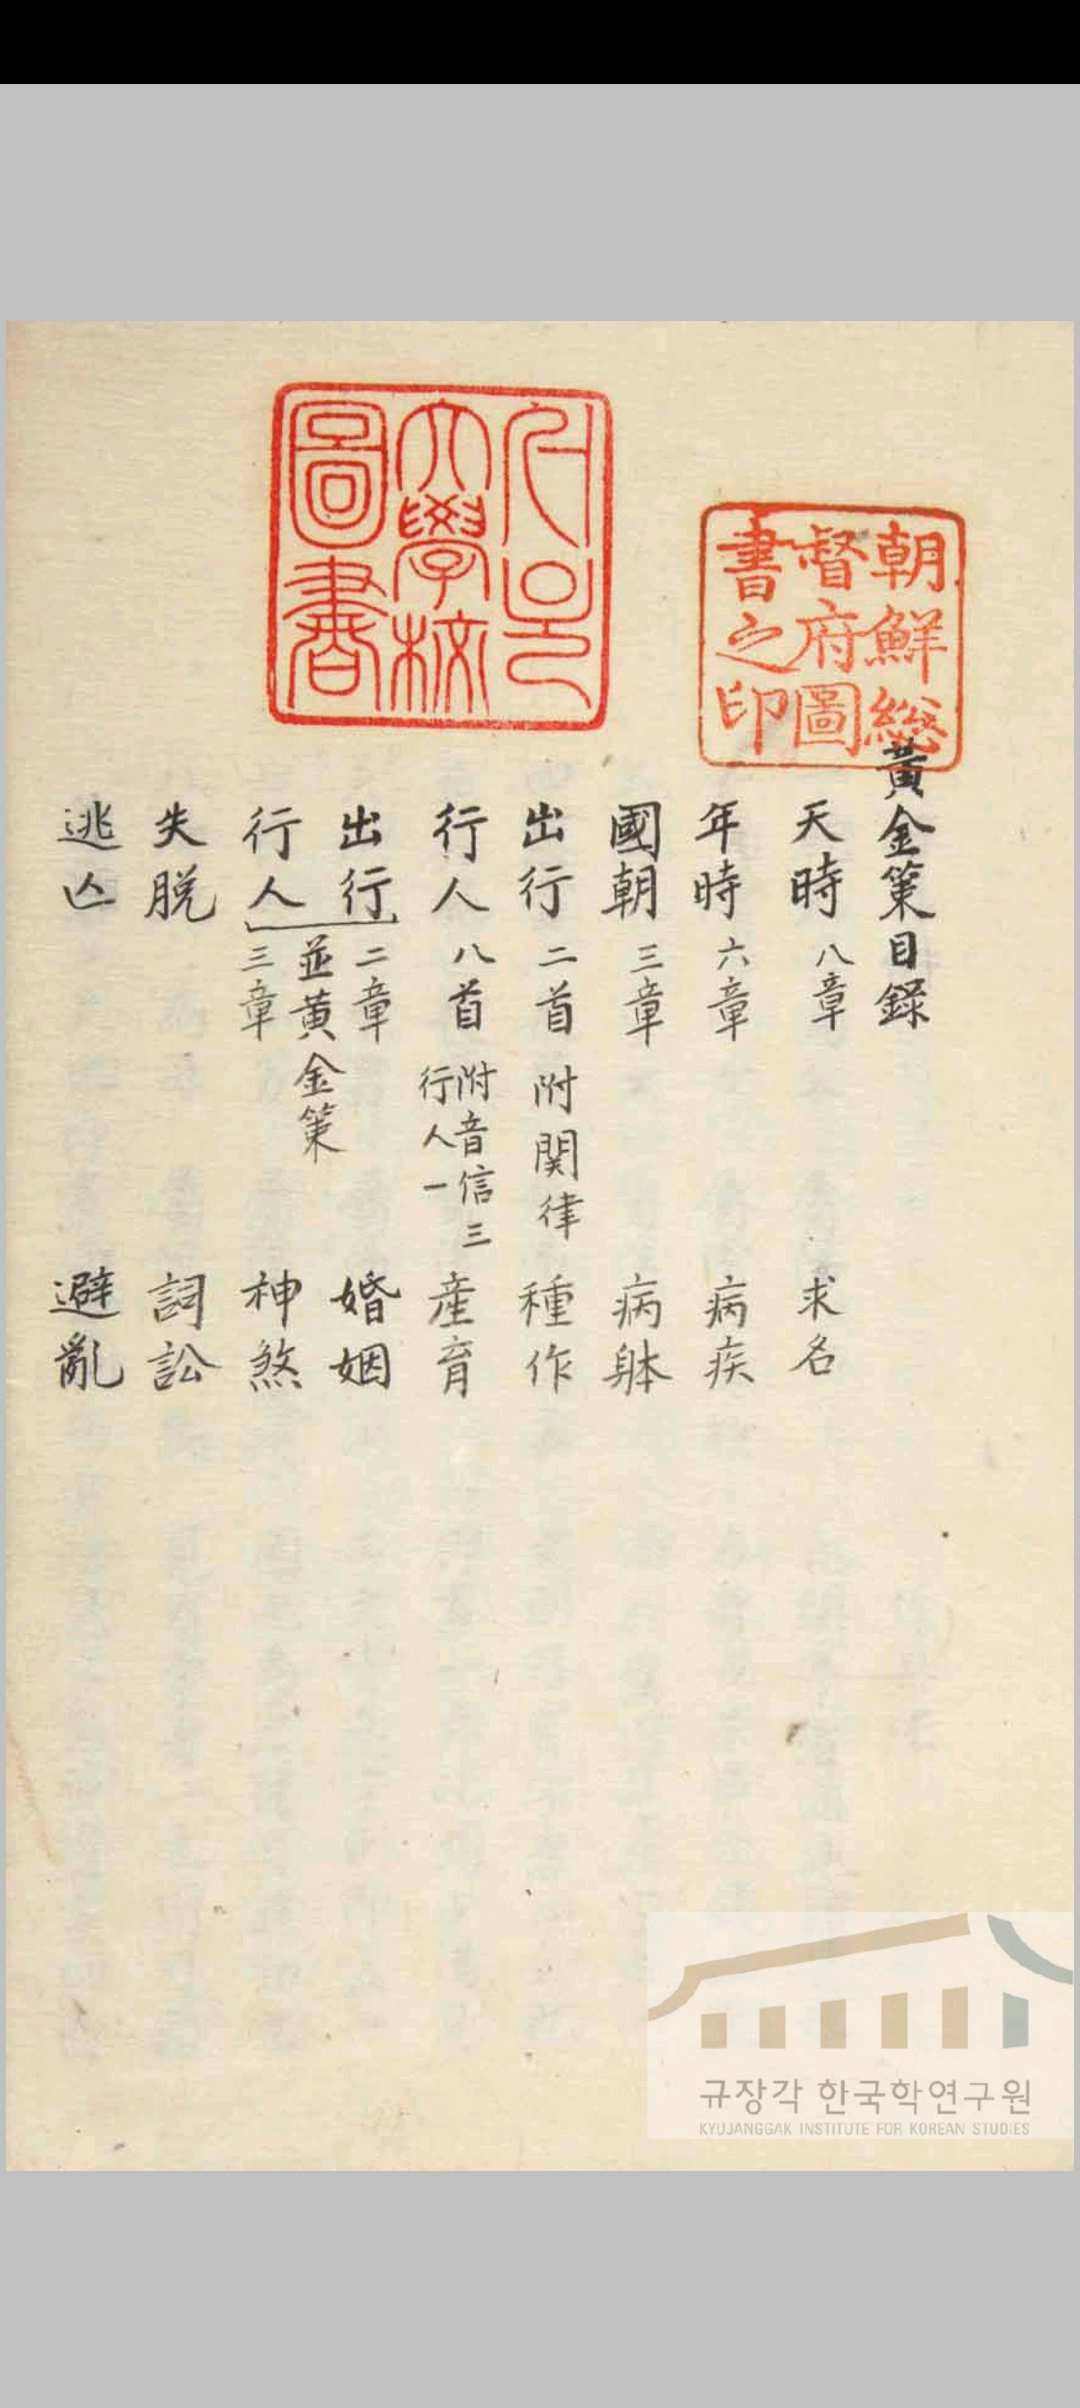 서울
大學校
圖書
朝鮮總
督府圖
書之印
黃金策目錄
天時 八章 求名
年時 六章 病疾
國朝 三章 病躰
出行 二首 附関律 種作
行人 八首 附音信三 行人一 産育
出行 二章 婚姻
並黃金策
行人 三章 神煞
失脱 詞訟
逃亡 避亂
규장각 한국학연구원
KYUJANGGAK INSTITUTE FOR KOREAN STUDIES